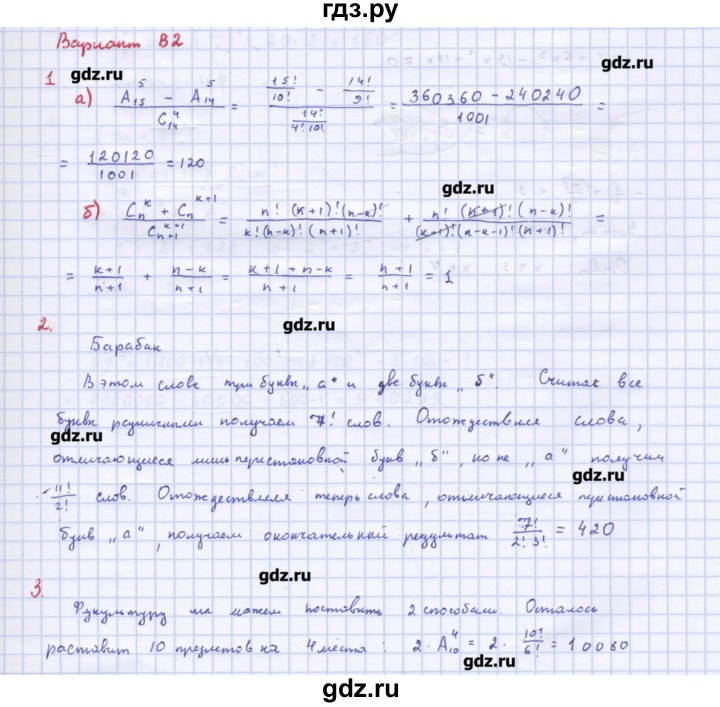 гдз.ру
Вариант В2
gdz.ru
gdz.ru
1
а) (A₁₅⁵ − A₁₄⁵) / C₁₄⁴ = (15!/10! − 14!/9!) / (14!/(4! 10!)) = (360360 − 240240) / 1001 =
= 120120 / 1001 = 120
gdz.ru
б) (Cₙᵏ + Cₙᵏ⁺¹) / Cₙ₊₁ᵏ⁺¹ = n! (k+1)! (n−k)! / k! (n−k)! (n+1)! + n! (k+1)! (n−k)! / (k+1)! (n−k−1)! (n+1)! =
= (k+1)/(n+1) + (n−k)/(n+1) = (k+1+n−k)/(n+1) = (n+1)/(n+1) = 1
2.
gdz.ru
Барабан
В этом слове три буквы „а“ и две буквы „б“. Считая все
буквы различными получаем 7! слов. Отождествляя слова,
gdz.ru
отличающиеся лишь перестановкой букв „б“, но не „а“ получим
gdz.ru
11!/2! слов. Отождествляя теперь слова, отличающиеся перестановкой
букв „а“, получаем окончательный результат 7!/(2! 3!) = 420
3.
gdz.ru
Физкультуру мы можем поставить 2 способами. Осталось
расставит 10 предметов на 4 места: 2·A₁₀⁴ = 2·10!/6! = 10080
gdz.ru
gdz.ru